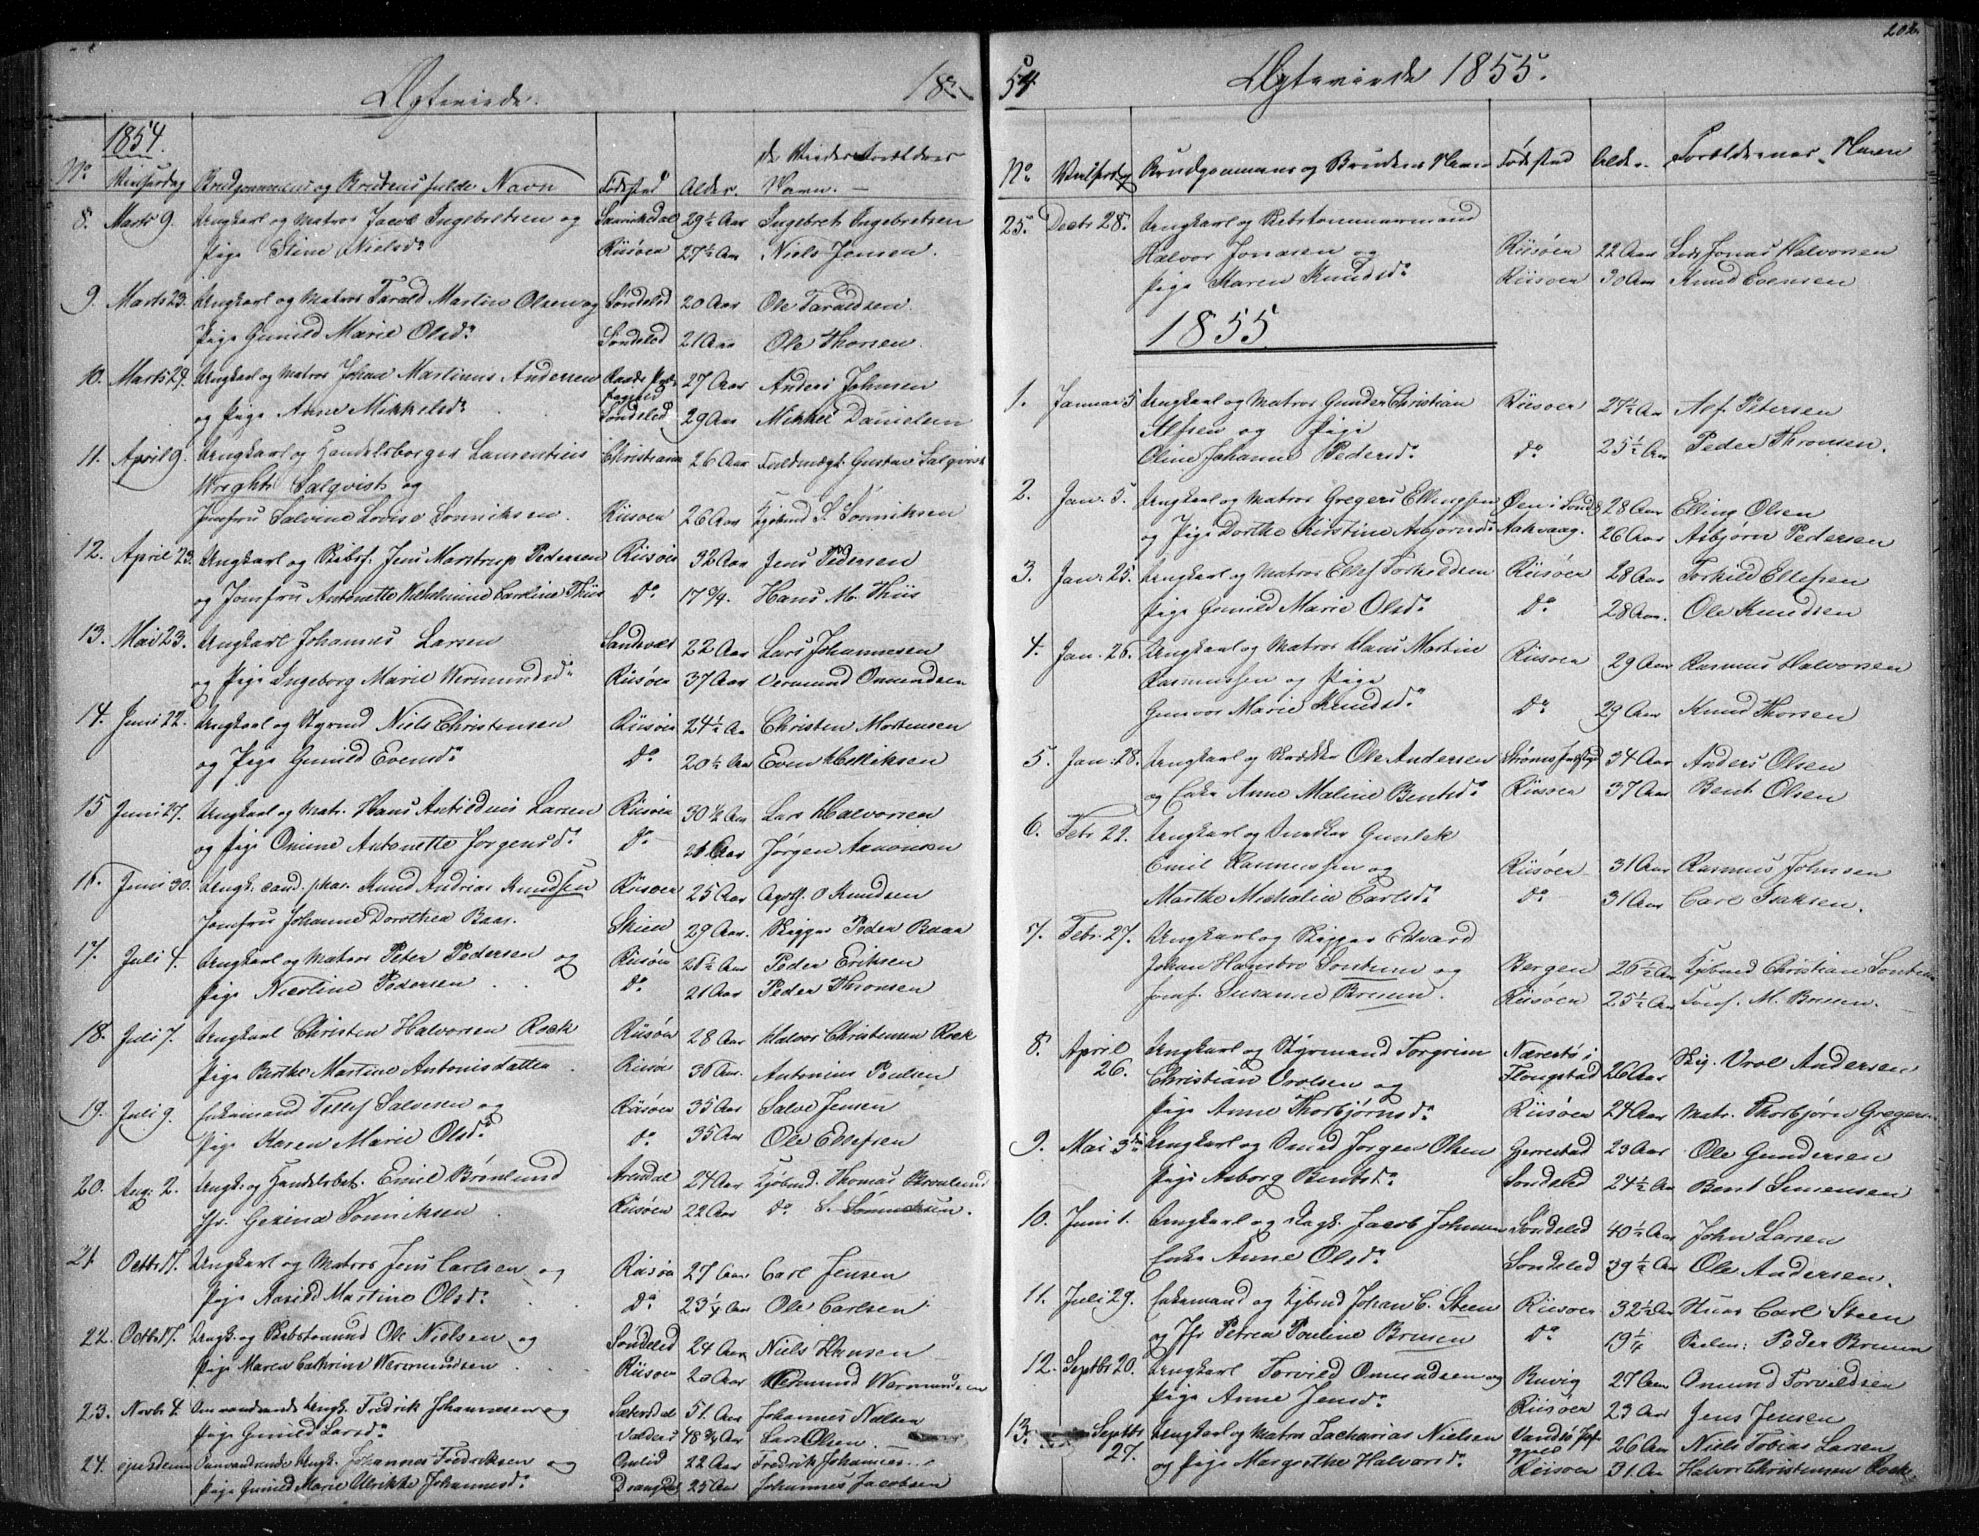 202.
Ægteviede. 1854
1854.
No Vielsesdag Brudgommens og Brudens fulde Navn Fødested Alder. de Viedes Forældres Navn. —
8. Marts 9. Ungkarl og Matros Jacob Ingebretsen og 29½ Aar Ingebret Ingebretsen
Pige Stine Nielsd. Riisøer 27½ Aar Niels Jensen.
9. Marts 23. Ungkarl og Matros Tarald Martin Olsen og Søndeled 20 Aar Ole Taraldsen.
Pige Gunild Marie Olsd. Søndeled 21 Aar Ole Thorsen.
10. Marts 29. Ungkarl og Matros Johan Martinus Andersen 27 Aar Anders Johnsen
og Pige Anne Mikkelsd. Søndeled 29 Aar Mikkel Danielsen
11. April 9. Ungkarl og Handelsborger Laurentius Christiania 26 Aar Fuldmægt. Gustav Salqvist
Wright Salqvist og
Jomfru Salvine Lovise Sønniksen. Riisøer 26 Aar Kjøbmd S. Sønniksen
12. April 23. Ungkarl og Skibsf. Jens Marstrup Pedersen Riisøer 32 Aar Jens Pedersen
og Jomfru Antonette Wilhelmine Caroline Thiis Do 17 ¾. Hans M. Thiis
13. Mai 23. Ungkarl Johannes Larsen 22 Aar Lars Johannesen
og Pige Ingeborg Marie Wermundsd. Riisøer 37 Aar Vermund Omundsen
14. Juni 22. Ungkarl og Styrmd Niels Christensen Riisøer 24½ Aar Christen Mortensen
og Pige Gunild Evensd. Do 20½ Aar Even Kittilsen
15 Juni 27. Ungkarl og Matr. Hans Larsen Riisøer 30 ½ Aar Lars Halvorsen
og Pige Onine Antonette Jørgensd. Do 21 Aar Jørgen Aanonsen
16. Juni 30. Ungk. cand. phar. Knud Andreas Knudsen Riisøer 25 Aar O Knudsen
Jomfru Johanne Dorothea Baar. Skien 29 Aar. Skipper Peder Baar
17. Juli 4. Ungkarl og Matros Peter Pedersen og Riisøer 21½ Aar Peder Eriksen
Pige Nicoline Pedersen Do 21 Aar Peder Thronsen
18. Juli 7. Ungkarl Christen Halvorsen Roek Riisøer 28 Aar Halvor Christensen Roek
Pige Berthe Martine Antonisdatter Riisøer 30 Aar. Antonius Poulsen
19. Juli 9. Enkemand Tellef Salvesen og Riisøer 35 Aar Salve Jensen
Pige Karen Marie Olsd. Do 35 Aar Ole Ellefsen
20. Aug: 2. Ungk. og Handelsbet. Emil Brønlund Arendal 24 Aar Kjøbmd. Thomas Brønlund
Jfr. Gezina Sønniksen. Riisøer 22 Aar Do S. Sønniksen.
21 Octbr 17. Ungkarl og Matros Jens Carlsen og Riisøer 27 Aar Carl Jensen
Pige Aasild Martine Olsd. Do 23¼ Aar Ole Carlsen
22. Octbr 17. Ungk. og Skibstømmd Ole Nielsen og Søndeled 24 Aar Niels Hansen
Pige Maren Cathrine Wermundsen Riisøer 20 Aar Wermund Wermundsen
23. Novbr 4. Omvandrende Ungk. Fredrik Johannesen og Sætersdal 51. Aar Johannes Nielsen
Pige Gunild Larsd. Valders 48 ¾ Aar Lars Olsen. —
24. Omvandrende Ungk. Johannes Fredriksen og Omlid 22 Aar Fredrik Johannes...
Pige Gunild Marie Ulrikke Johannesd. Drangedal 25 Aar Johannes Jacobsen
Ægteviede 1855.
No Vielsesdag Brudgommens og Brudens Navn Fødested Alder. Forældrenes Navn
25. Decbr 28. Ungkarl og Skibstømmermand
Halvor Jonasen og Riisøer 22 Aar Jonas Halvorsen
Pige Maren Knudsd. Riisøer 30 Aar Knud Evensen
1855
1. Januar 5 Ungkarl og Matros Gunder Christian Riisøer 27½ Aar Alf Petersen
Alfsen og Pige
Oline Johanne Pedersd. Do 25½ Aar Peder Thronsen.
2. Jan: 5. Ungkarl og Matros Gregers Ellingsen Øen i Sønd. 28 Aar Elling Olsen
og Pige Dorthe Kirstine Asbjørnsd. Aakvaag. 26 Aar Asbjørn Pedersen
3. Jan: 25. Ungkarl og Matros Ellef Torkildsen Riisøer 28 Aar Torkild Ellefsen
Pige Gunild Marie Olsd. Do 28 Aar. Ole Knudsen
4. Jan. 26. Ungkarl og Matros Hans Martin Riisøer 29 Aar Rasmus Halvorsen
Rasmussen og Pige
Gunvor Marie Knudsd. Do 29 Aar Knud Thorsen
5. Jan: 28. Ungkarl og Skrædder Ole Andersen 34 Aar Anders Olsen
og Enke Anne Maline Bentsd. Riisøer 37 Aar Bent Olsen
6. Febr 22. Ungkarl og Snedker Gunlek
Emil Rasmussen og Riisøer 31 Aar Rasmus Johnsen
Marthe Michaline Carlsd. Do 31 Aar Carl Isaksen.
7. Febr. 27. Ungkarl og Skipper Edvard
Johan Hambro Sontum og Bergen 26½ Aar Kjøbmd Christian Sontum
Jomf. Susanne Bruun. Riisøer 25½ Aar M. Bruun.
8. April 26. Ungkarl og Styrmand Torgrim Nærestø i Skip. Vrol Andersen
Christian Vrolsen og Flougstad 26 Aar
Pige Anne Thorbjørnsd. Riisøer 24 Aar Matr. Thorbjørn Gregers...
9. Mai 3die Ungkarl og Smed Jørgen Olsen Gjerrestad 23 Aar Ole Gundersen
Pige Asborg Bentsd. Søndeled 24½ Aar Bent Simensen
10. Juni 1. Ungkarl og Jacob Johnsen Søndeled 40½ Aar John Larsen
Enke Anne Olsd. Søndeled 39½ Aar Ole Andersen.
11. Juli 29. Enkemand og Kjbmd Johan C. Steen Riisøer 32½ Aar Carl Steen
og Jfr Petrea Pauline Bruun Do 19¼ Peder Bruun
12. Septbr 20. Ungkarl Torvild Omundsen og Buvig 27 Aar Omund Torvildsen
Pige Anne Jensd. Riisøer 23 Aar Jens Jensen
13. Septbr 27. Ungkarl og Matros Zacharias Nielsen 26 Aar Niels Tobias Larsen
og Pige Margrethe Halvorsd. Riisøer 31. Aar Halvor Christensen Roek